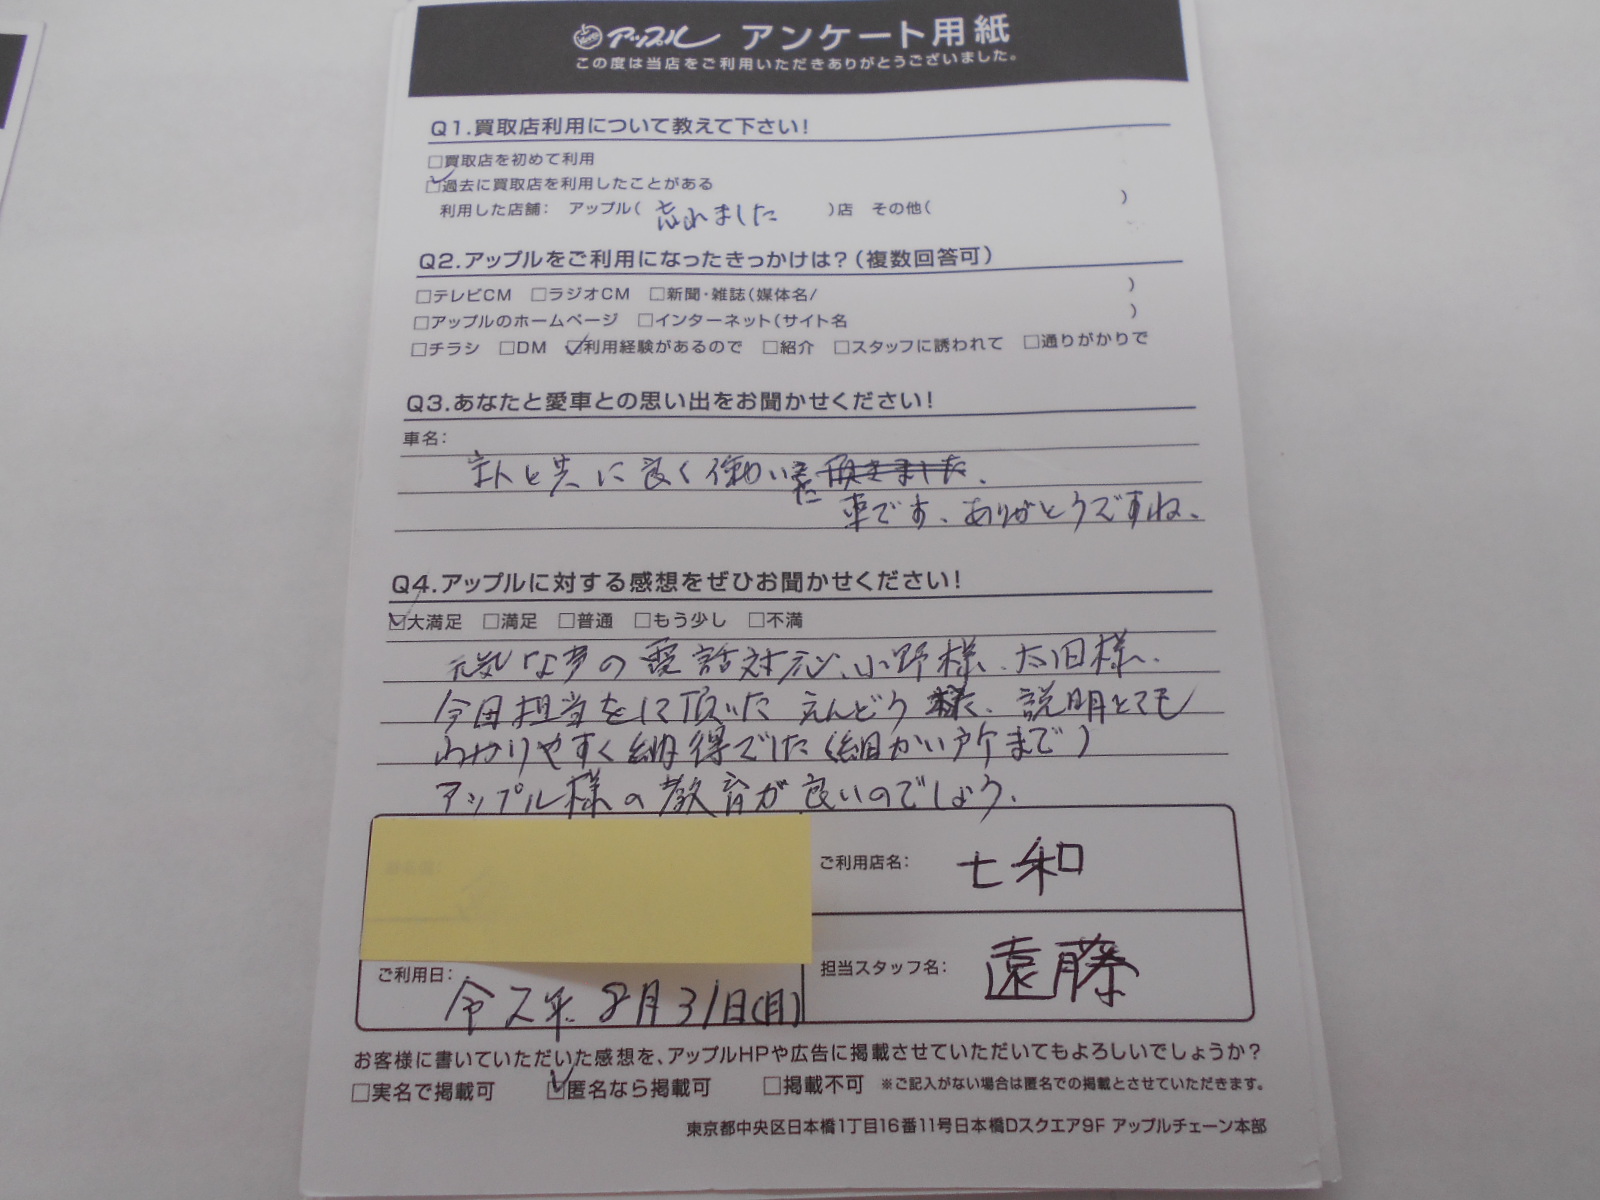 アップル アンケート用紙
この度は当店をご利用いただきありがとうございました。
Q1.買取店利用について教えて下さい!
□買取店を初めて利用
☑過去に買取店を利用したことがある
利用した店舗: アップル( 忘れました )店 その他( )
Q2.アップルをご利用になったきっかけは?(複数回答可)
□テレビCM □ラジオCM □新聞・雑誌(媒体名/ )
□アップルのホームページ □インターネット(サイト名 )
□チラシ □DM ☑利用経験があるので □紹介 □スタッフに誘われて □通りがかりで
Q3.あなたと愛車との思い出をお聞かせください!
車名:
主人と共に良く働いた
車です、ありがとうですね、
Q4.アップルに対する感想をぜひお聞かせください!
☑大満足 □満足 □普通 □もう少し □不満
元気な声の電話対応、小野様、太田様、
今回担当をして頂いた えんどう様、説明とても
わかりやすく納得でした(細かい所まで)
アップル様の教育が良いのでしょう、
ご利用店名: 七和
ご利用日: 令2年 8月31日(月)
担当スタッフ名: 遠藤
お客様に書いていただいた感想を、アップルHPや広告に掲載させていただいてもよろしいでしょうか?
□実名で掲載可 ☑匿名なら掲載可 □掲載不可 ※ご記入がない場合は匿名での掲載とさせていただきます。
東京都中央区日本橋1丁目16番11号日本橋Dスクエア9F アップルチェーン本部